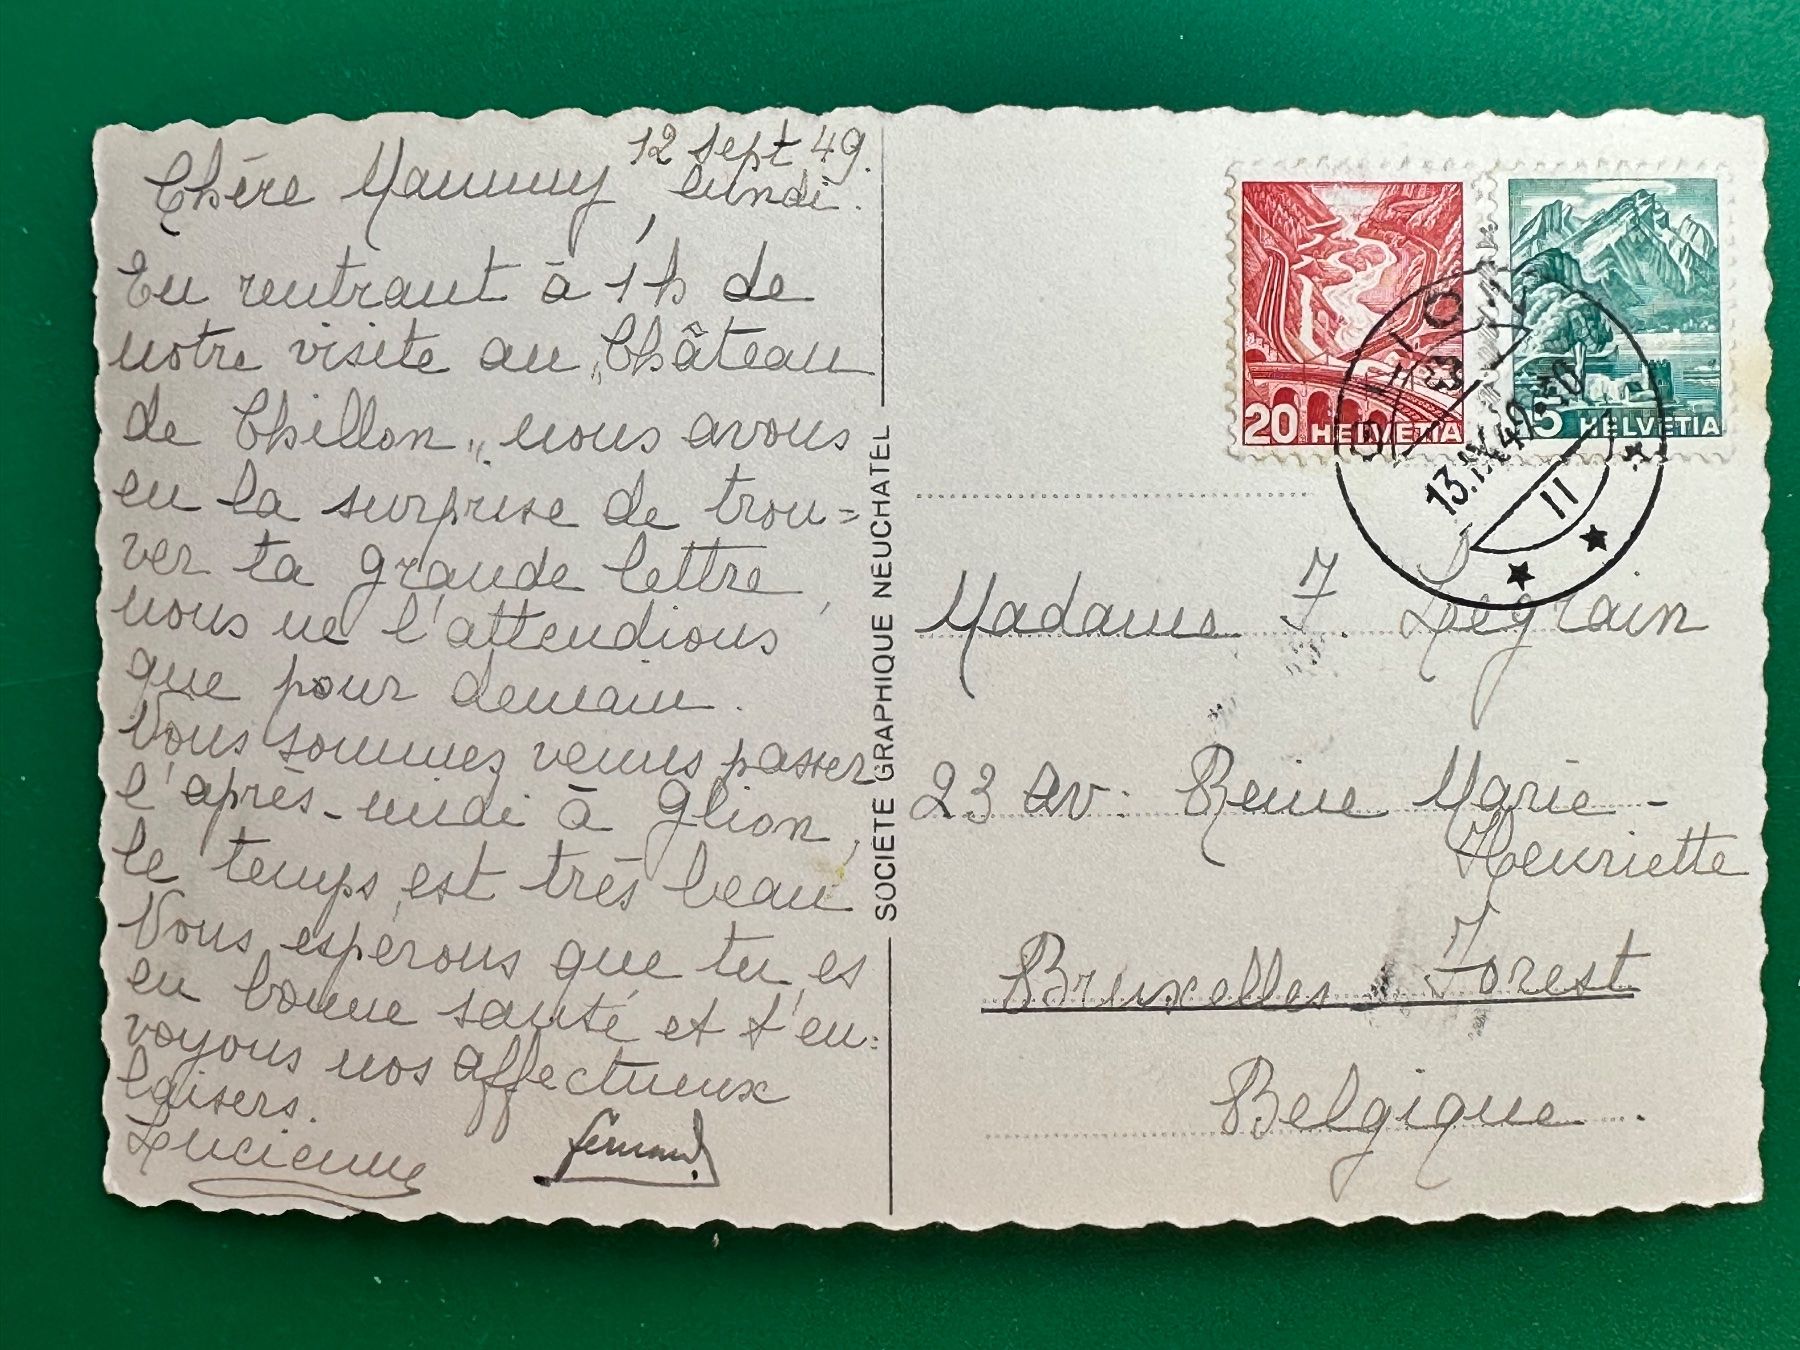 12 sept 49.
Chère Mammy, lundi.
En rentrant à 1 h de
notre visite au "Château
de Chillon" nous avons
eu la surprise de trou=
ver ta grande lettre,
nous ne l'attendions
que pour demain.
Nous sommes venus passer
l'après-midi à Glion,
le temps est très beau
Nous espérons que tu es
en bonne santé et t'en=
voyons nos affectueux
baisers.
Lucienne Fernand.
SOCIETE GRAPHIQUE NEUCHATEL
20 HELVETIA
5 HELVETIA
SION
13.IX.49
II
Madame J. Legrain
23 av. Reine Marie-
Henriette
Bruxelles Forest
Belgique